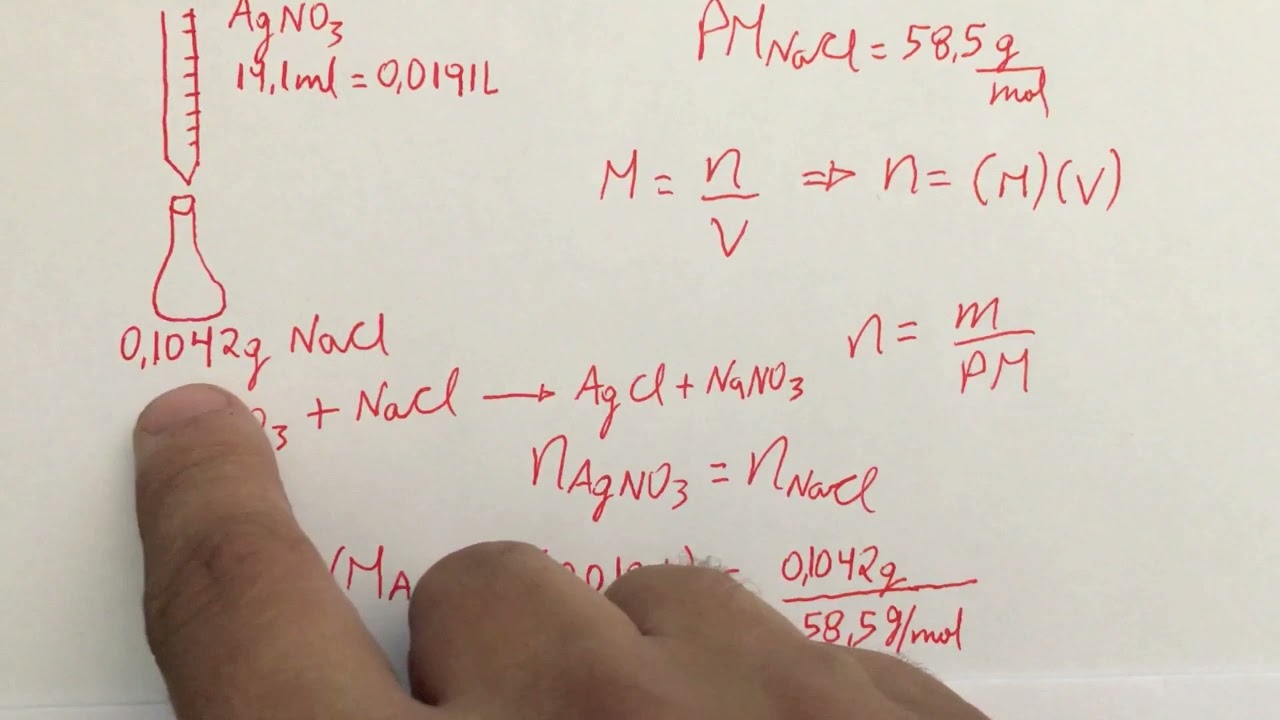 AgNO₃
19,1ml = 0,0191L
PM NaCl = 58,5 g/mol
M = n/V ⇒ n = (M)(V)
0,1042g NaCl
n = m/PM
O₃ + NaCl → AgCl + NaNO₃
nAgNO₃ = nNaCl
(MA 0,01 ) = 0,1042g / 58,5g/mol